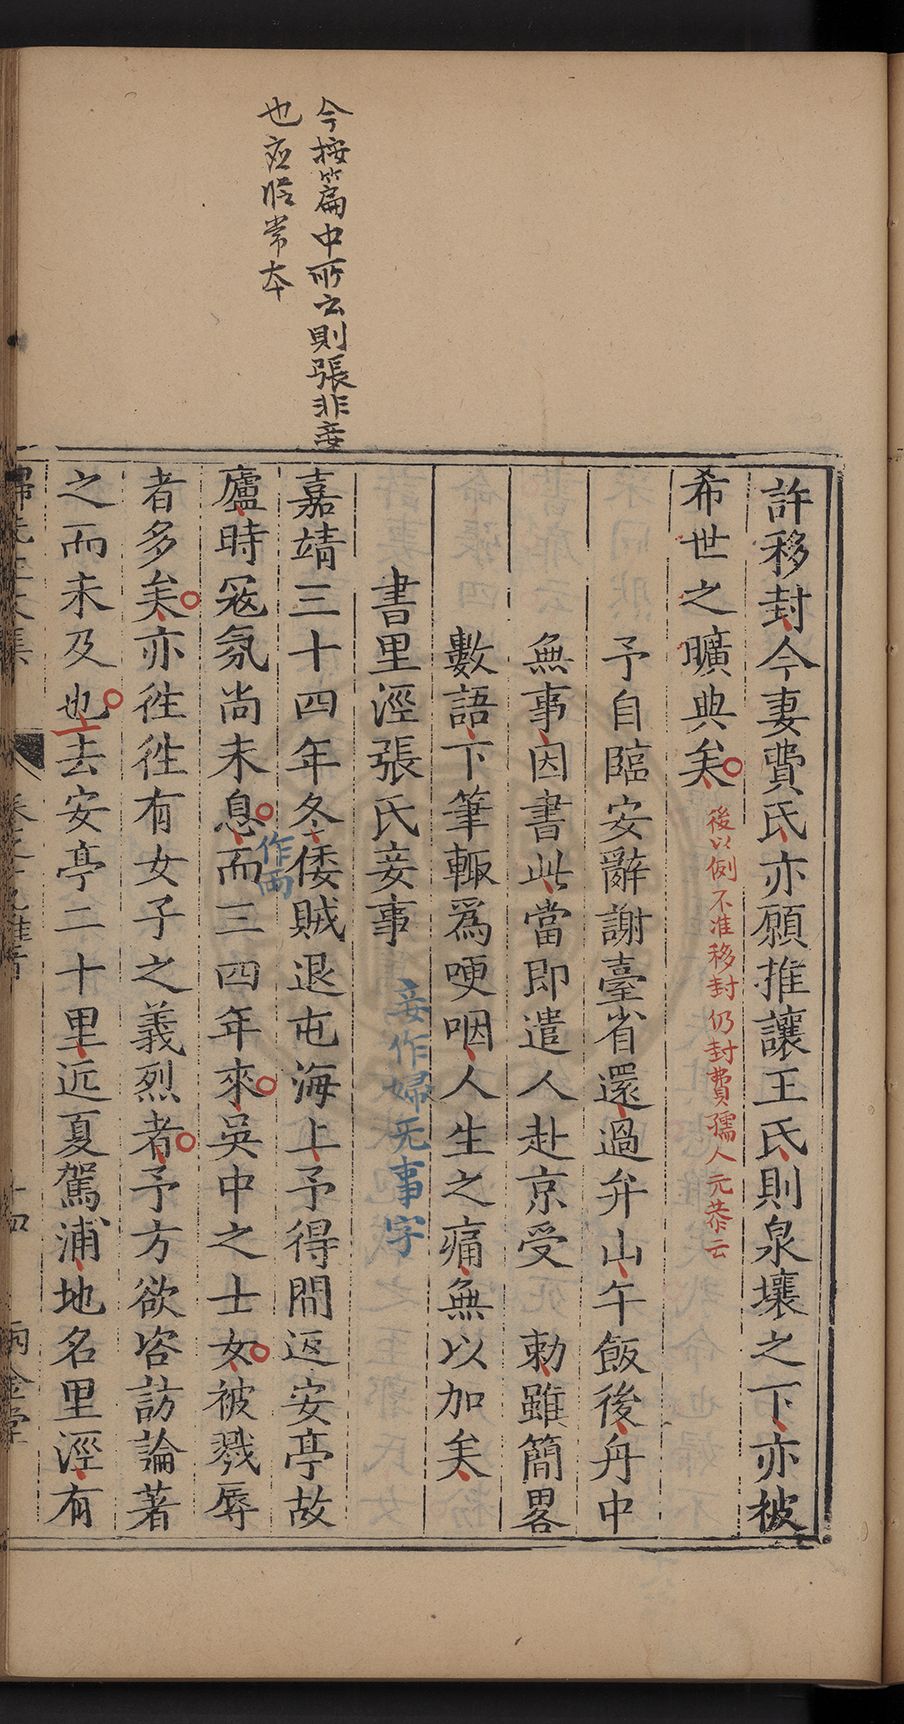 今按篇中所云則張非妾
也應照常本
許移封今妻費氏亦願推讓王氏則泉壤之下亦被
希世之曠典矣
後以例不准移封仍封費孺人元恭云
予自臨安辭謝臺省還過弁山午飯後舟中
無事因書此當即遣人赴京受 勅雖簡畧
數語下筆輙爲哽咽人生之痛無以加矣
書里涇張氏妾事
妾作婦无事字
嘉靖三十四年冬倭賊退屯海上予得間返安亭故
廬時寇氛尚未息而三四年來吳中之士女被戮辱
作两
者多矣亦徃徃有女子之義烈者予方欲咨訪論著
之而未及也去安亭二十里近夏駕浦地名里涇有